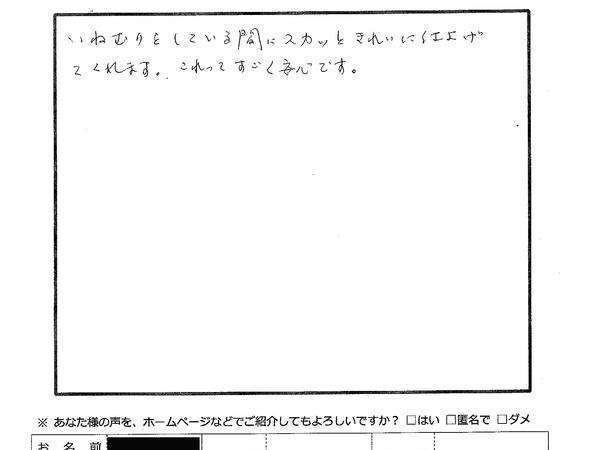 いねむりをしている間にスカッときれいに仕上げ
てくれます。これってすごく安心です。
※ あなた様の声を、ホームページなどでご紹介してもよろしいですか？ □はい □匿名で □ダメ
お 名 前